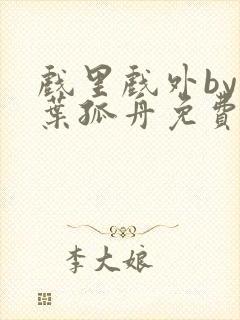 戏里戏外by
葉孤舟免費
李大娘